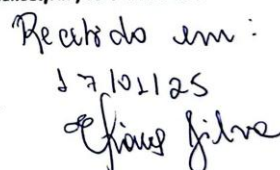 Recebido em:
17/01/25
Silva